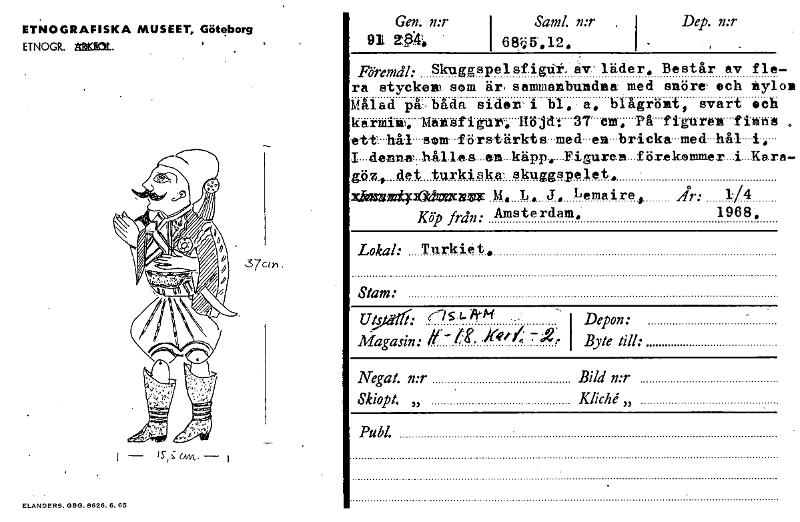 ETNOGRAFISKA MUSEET, Göteborg
ETNOGR. ARKEOL.
37cm.
15,5 cm.
ELANDERS. GBG. 8626. 6. 65
Gen. n:r Saml. n:r Dep. n:r
91 284. 6865.12.
Föremål: Skuggspelsfigur av läder. Består av fle-
ra stycken som är sammanbundna med snöre och nylon
Målad på båda sidor i bl. a. blågrönt, svart och
karmin. Mansfigur. Höjd: 37 cm. På figuren finns
ett hål som förstärkts med en bricka med hål i.
I denna hålles en käpp. Figuren förekommer i Kara-
göz, det turkiska skuggspelet.
M. L. J. Lemaire, År: 1/4
Köp från: Amsterdam. 1968.
Lokal: Turkiet.
Stam:
Utställt: ISLAM Depon:
Magasin: H-18. Kart. -2. Byte till:
Negat. n:r Bild n:r
Skiopt. „ Kliché „
Publ.